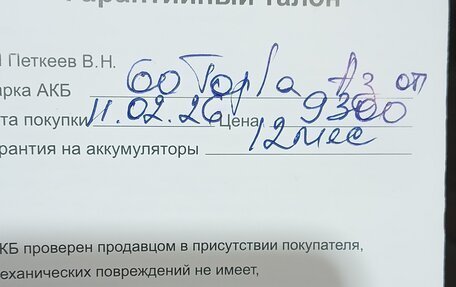 Гарантийный талон
П Петкеев В.Н.
арка АКБ 60 Topla Аз оп
та покупки 11.02.26 Цена 9300
арантия на аккумуляторы 12 мес
КБ проверен продавцом в присутствии покупателя,
еханических повреждений не имеет,